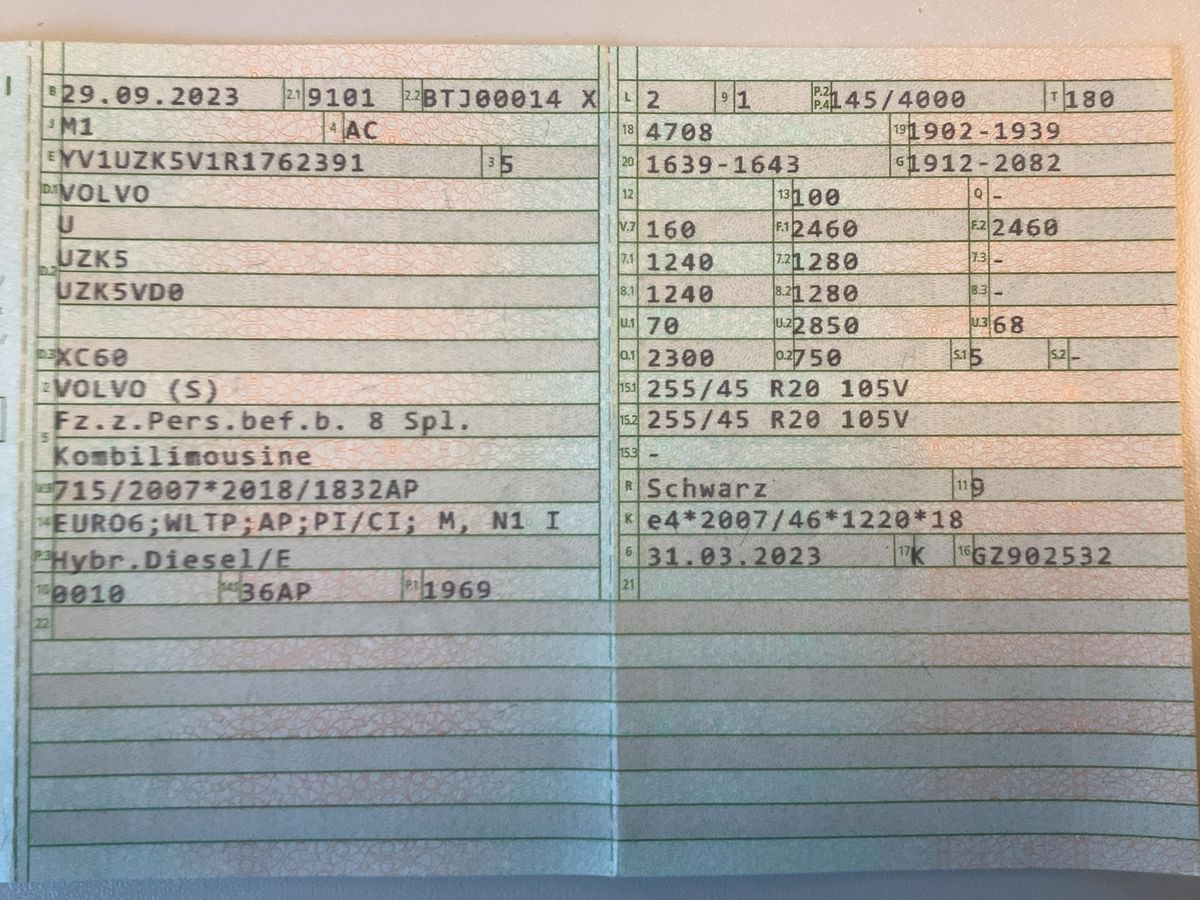 B 29.09.2023 2.1 9101 2.2 BTJ00014 X
J M1 4 AC
E YV1UZK5V1R1762391 3 5
D.1 VOLVO
U
D.2 UZK5
UZK5VD0
D.3 XC60
2 VOLVO (S)
5 Fz.z.Pers.bef.b. 8 Spl.
Kombilimousine
V.9 715/2007*2018/1832AP
14 EURO6;WLTP;AP;PI/CI; M, N1 I
P.3 Hybr.Diesel/E
10 0010 14.1 36AP P.1 1969
22
L 2 9 1 P.2 P.4 145/4000 T 180
18 4708 19 1902-1939
20 1639-1643 G 1912-2082
12 13 100 Q -
V.7 160 F.1 2460 F.2 2460
7.1 1240 7.2 1280 7.3 -
8.1 1240 8.2 1280 8.3 -
U.1 70 U.2 2850 U.3 68
O.1 2300 O.2 750 S.1 5 S.2 -
15.1 255/45 R20 105V
15.2 255/45 R20 105V
15.3 -
R Schwarz 11 9
K e4*2007/46*1220*18
6 31.03.2023 17 K 16 GZ902532
21